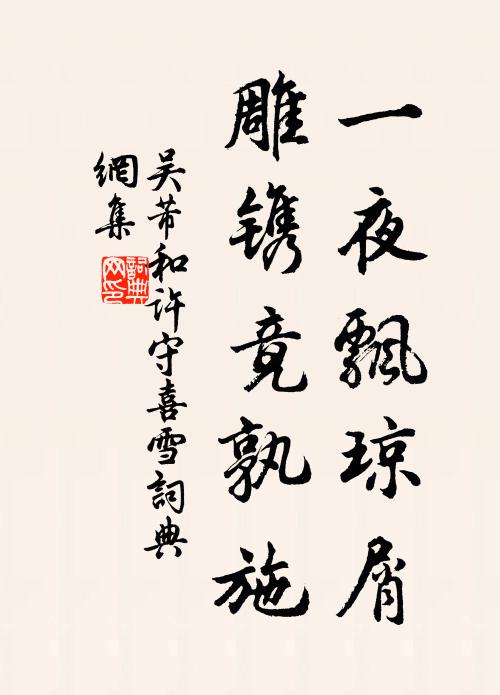 一夜飘琼屑
雕镌竟孰施
吴芾和许守喜雪詞典
網集
詞典網印